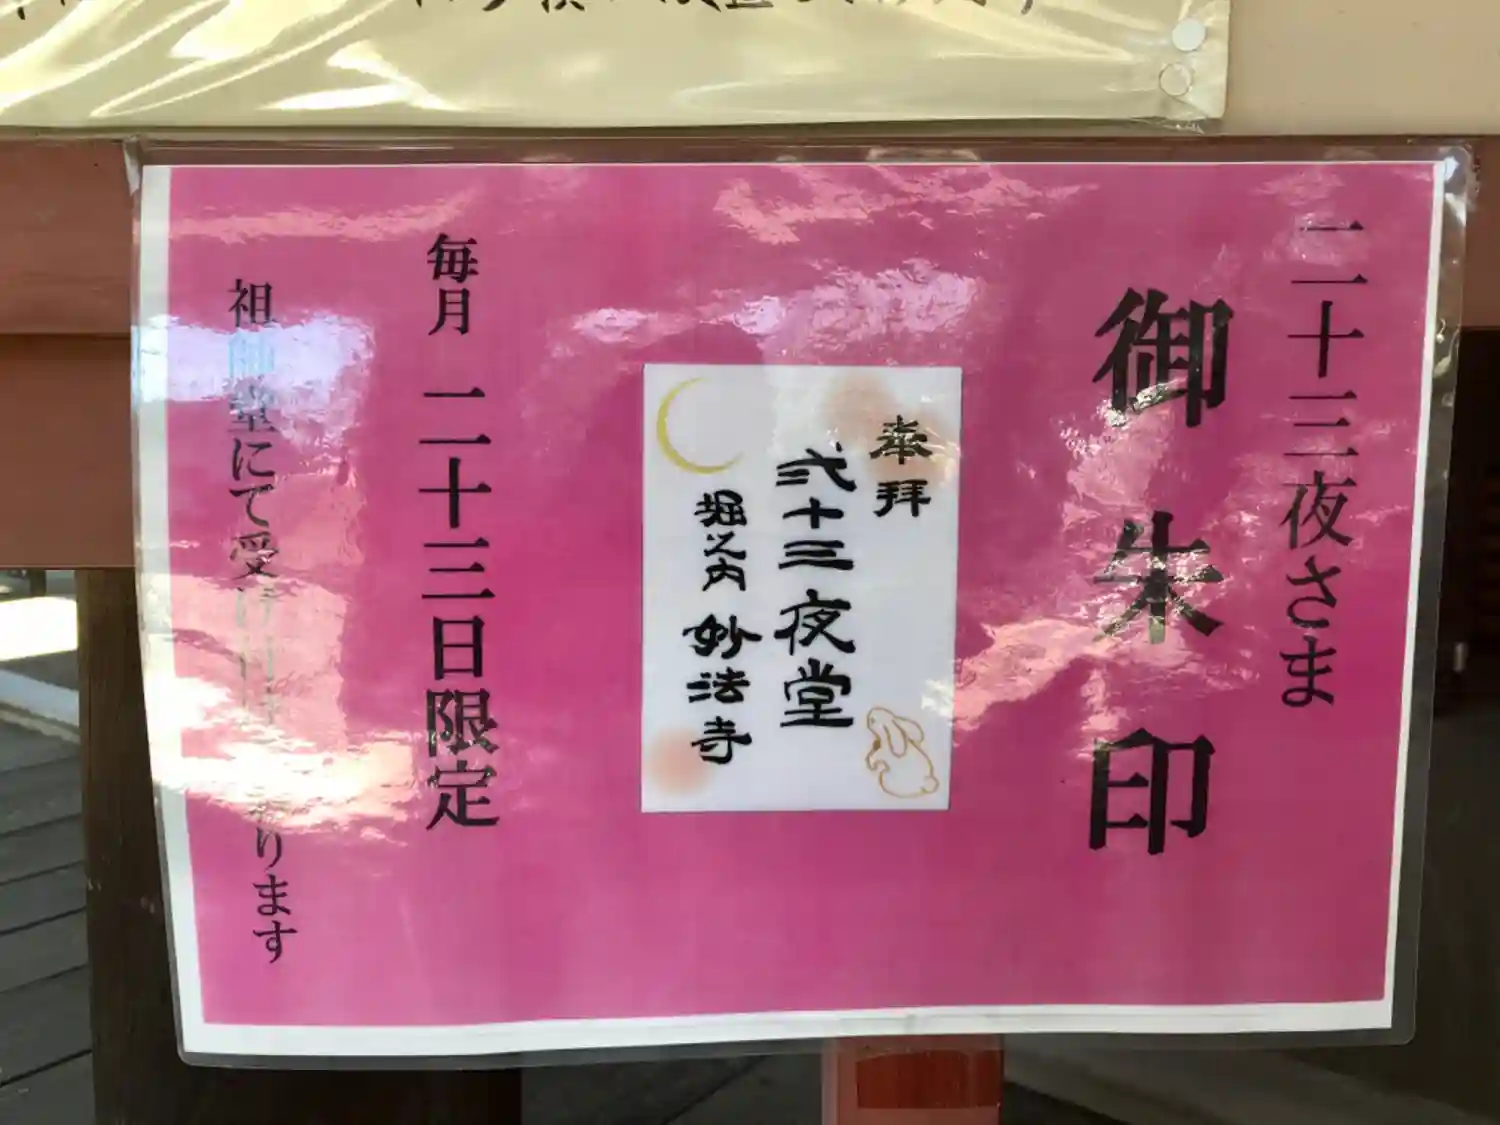 二十三夜さま
御朱印
奉拝
弐十三夜堂
堀之内 妙法寺
毎月 二十三日限定
祖師堂にて受け付けております